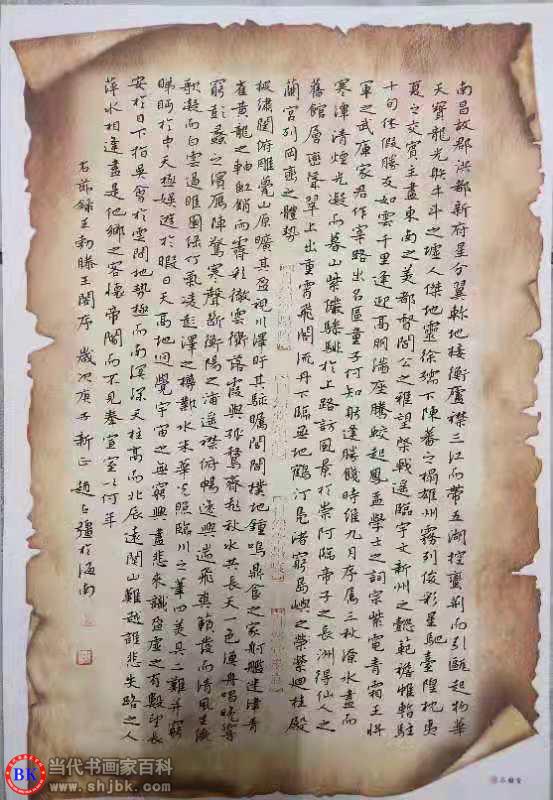 南昌故郡洪都新府星分翼軫地接衡廬襟三江而帶五湖控蠻荊而引甌越物華
天寶龍光射牛斗之墟人傑地靈徐孺下陳蕃之榻雄州霧列俊彩星馳臺隍枕夷
夏之交賓主盡東南之美都督閻公之雅望棨戟遙臨宇文新州之懿範襜帷暫駐
十旬休假勝友如雲千里逢迎高朋滿座騰蛟起鳳孟學士之詞宗紫電青霜王將
軍之武庫家君作宰路出名區童子何知躬逢勝餞時維九月序屬三秋潦水盡而
寒潭清煙光凝而暮山紫儼驂騑於上路訪風景於崇阿臨帝子之長洲得仙人之
舊館層巒聳翠上出重霄飛閣流丹下臨無地鶴汀鳧渚窮島嶼之縈迴桂殿
蘭宮列岡巒之體勢
披繡闥俯雕甍山原曠其盈視川澤盱其駭矚閭閻撲地鐘鳴鼎食之家舸艦迷津青
雀黃龍之軸虹銷雨霽彩徹雲衢落霞與孤鶩齊飛秋水共長天一色漁舟唱晚響
窮彭蠡之濱雁陣驚寒聲斷衡陽之浦遙襟俯暢逸興遄飛爽籟發而清風生纖
歌凝而白雲遏睢園綠竹氣凌彭澤之樽鄴水朱華光照臨川之筆四美具二難并窮
睇眄於中天極娛遊於暇日天高地迥覺宇宙之無窮興盡悲來識盈虛之有數望長
安於日下指吳會於雲間地勢極而南溟深天柱高而北辰遠關山難越誰悲失路之人
萍水相逢盡是他鄉之客懷帝閽而不見奉宣室以何年
右節錄王勃滕王閣序 歲次庚子新正 趙占疆於海南
BK
当代书画家百科
www.shjbk.com